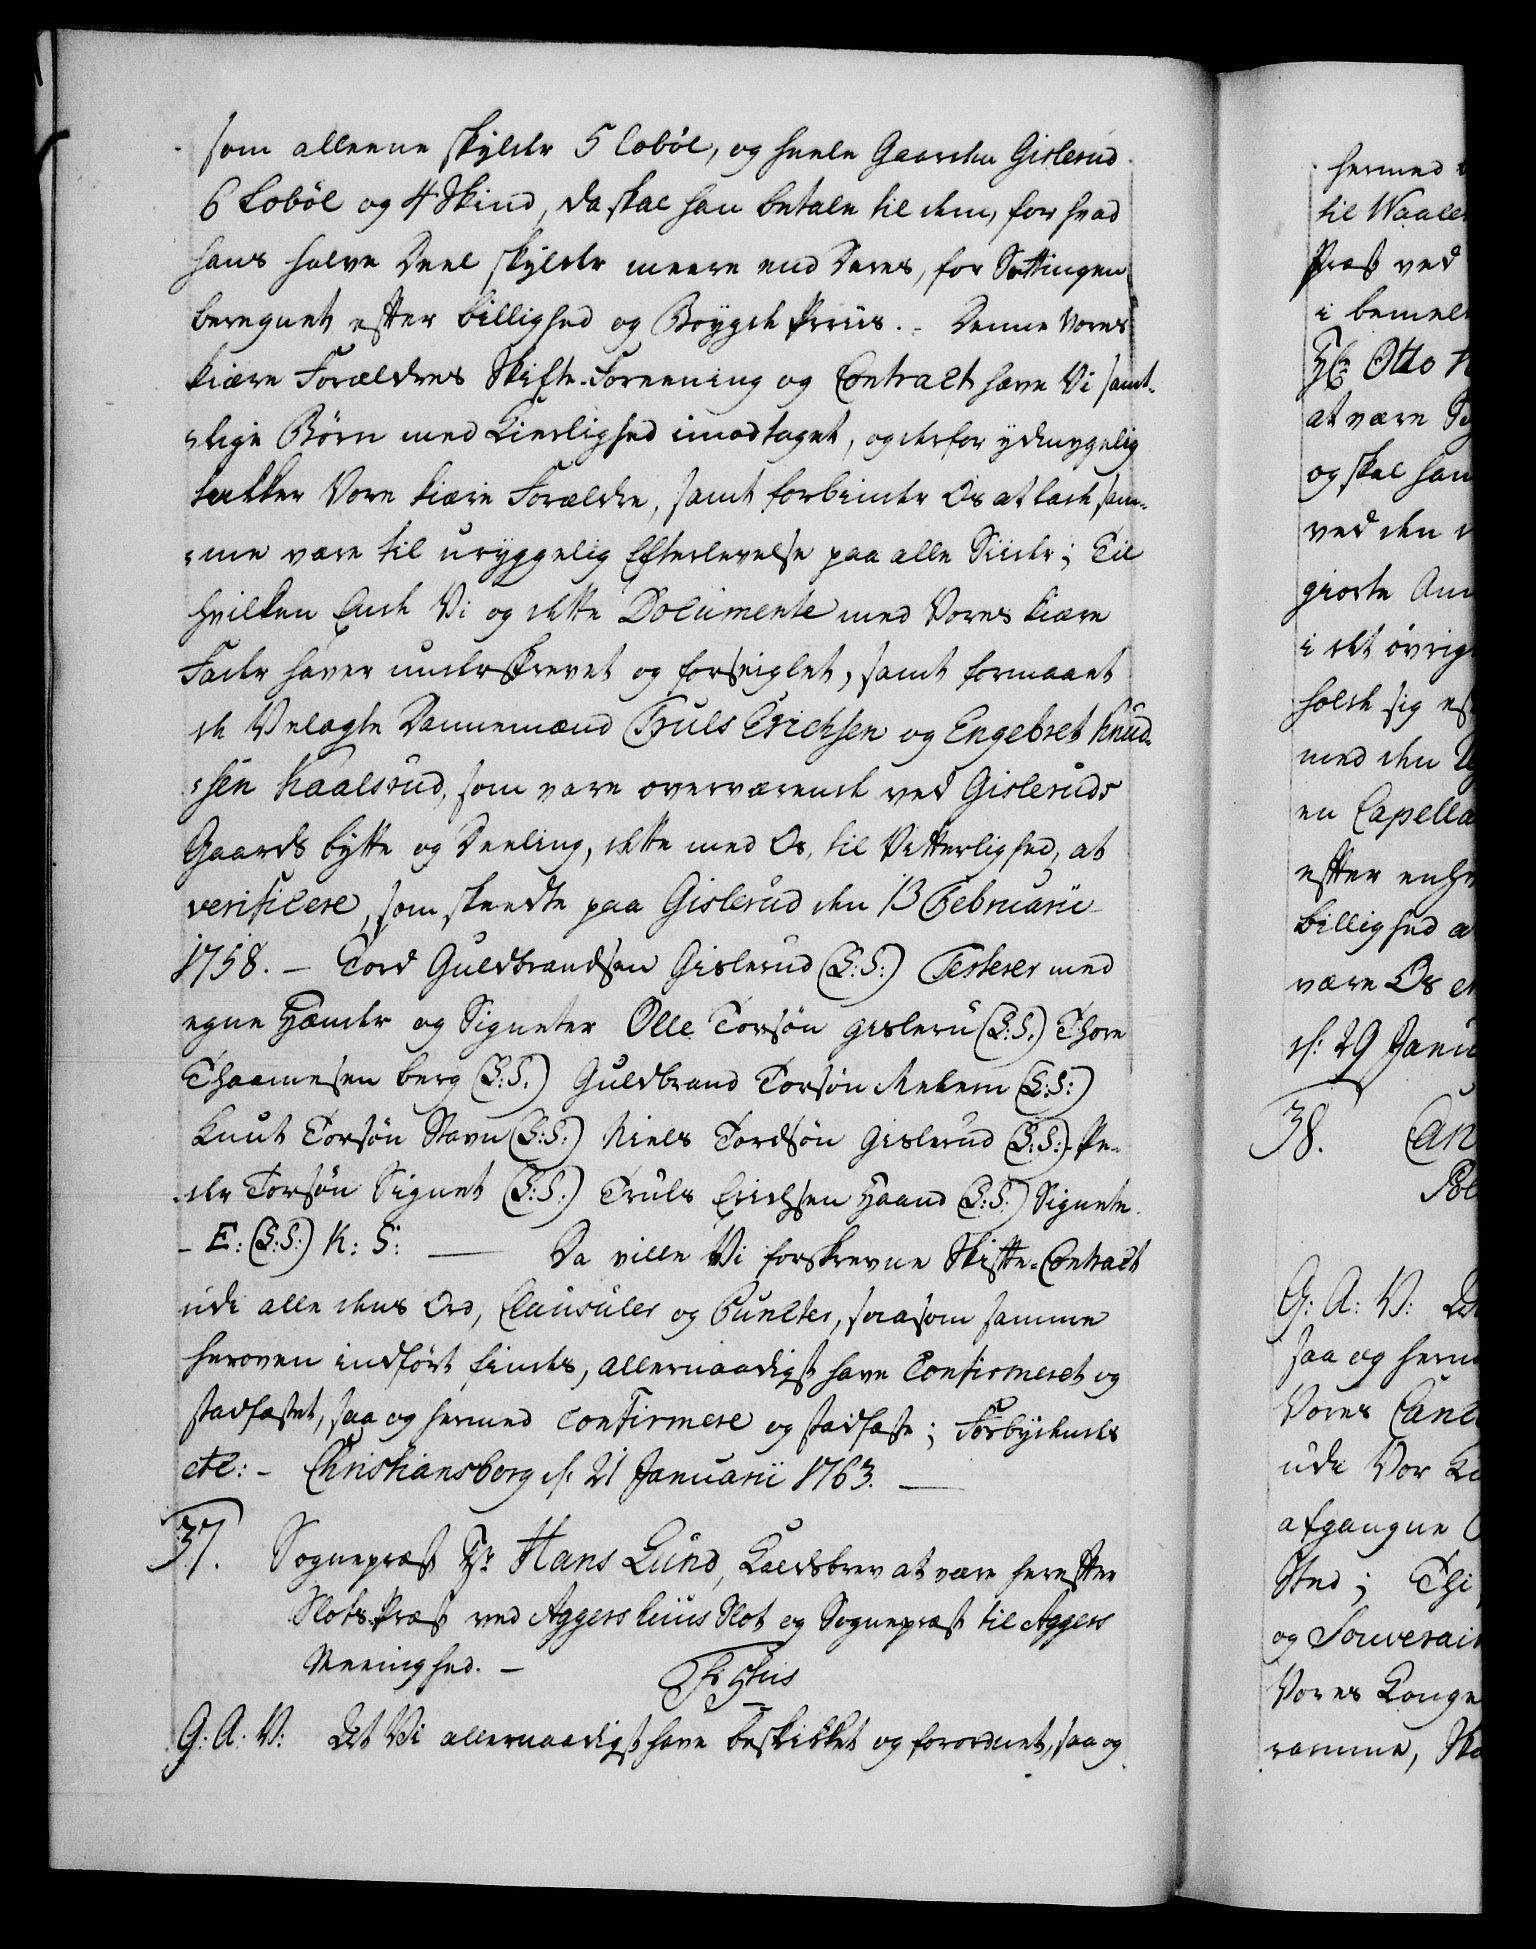 som alleene skylder 5 Lobøl, og heele Gaarden Gislerud
6 Lobøl og 4 Skind, da skal han betale til dem, for hvad
hans halve Deel skylder meere end Deres, for Settingen
beregnet efter billighed og Bøygde Priis. - Denne Vores
kiære Forældres Skifte-Foreening og Contract have Vi samt-
lige Børn med Kierlighed imodtaget, og derfor ydmygelig
takker Vore kiære Forældre, samt forbinder Os at lade sam-
me være til uryggelig Efterlevelse paa alle Siider; Til
hvilken Ende Vi og dette Documente med Vores kiære
Fader haver underskrevet og forseiglet, samt formaaet
de Velagte Dannemænd Truls Erichsen og Engebret Knud-
sen Kaalsrud, som vare overværende ved Gisleruds
Gaards bytte og Deeling, dette med Os, til Vitterlighed, at
verificere, som skeedte paa Gislerud den 13 Februarii
1758. - Tord Guldbrandsen Gislerud (L:S:) Testerer med
egne Hænder og Signeter Olle Torsøn gisleru (L:S:) Thore
Thaamesen berg (L:S:) Guldbrand Torsøn Melem (L:S:)
Knut Torsøn Stavn (L:S:) Niels Tordsøn gislerud (L:S:) Pe-
der Torsøn Signet (L:S:) Truls Erichsen Haand (L:S:) Signete
- E: (L:S:) K: S: — Da ville Vi forskrevne Skifte-Contract
udi alle dens Ord, Clausuler og Puncter, saasom samme
heroven indført findes, allernaadigst have Confirmeret og
stadfæstet, saa og hermed confirmere og stadfæste; Forbydendes
etc: - Christiansborg d: 21 Januarii 1763. —
37. Sognepræst Hr Hans Lund, Kaldsbrev at være herefter
Slots Præst ved Aggershuus Slot og Sognepræst til Aggers
Meenighed. -
G: A: V: At Vi allernaadigst have beskikket og forordnet, saa og
hermed
til Waale
Præst ved
i bemel
Hr: Otto
at være
og skal han
ved den
giorte An
i det øvrig
holde sig
med den
en Capella
efter
billighed
være Os
d: 29 Janu
38. Can
G: A: V:
saa og herm
Vores Canc
udi Vor
afgangne
Sted; Thi
og Souverain
Vores Konge
ramme,